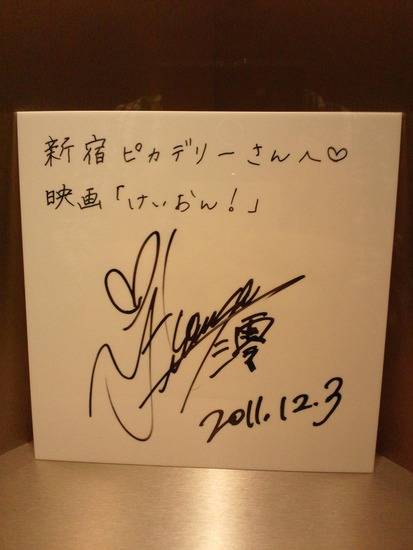 新宿ピカデリーさんへ♡
映画「けいおん!」
2011.12.3